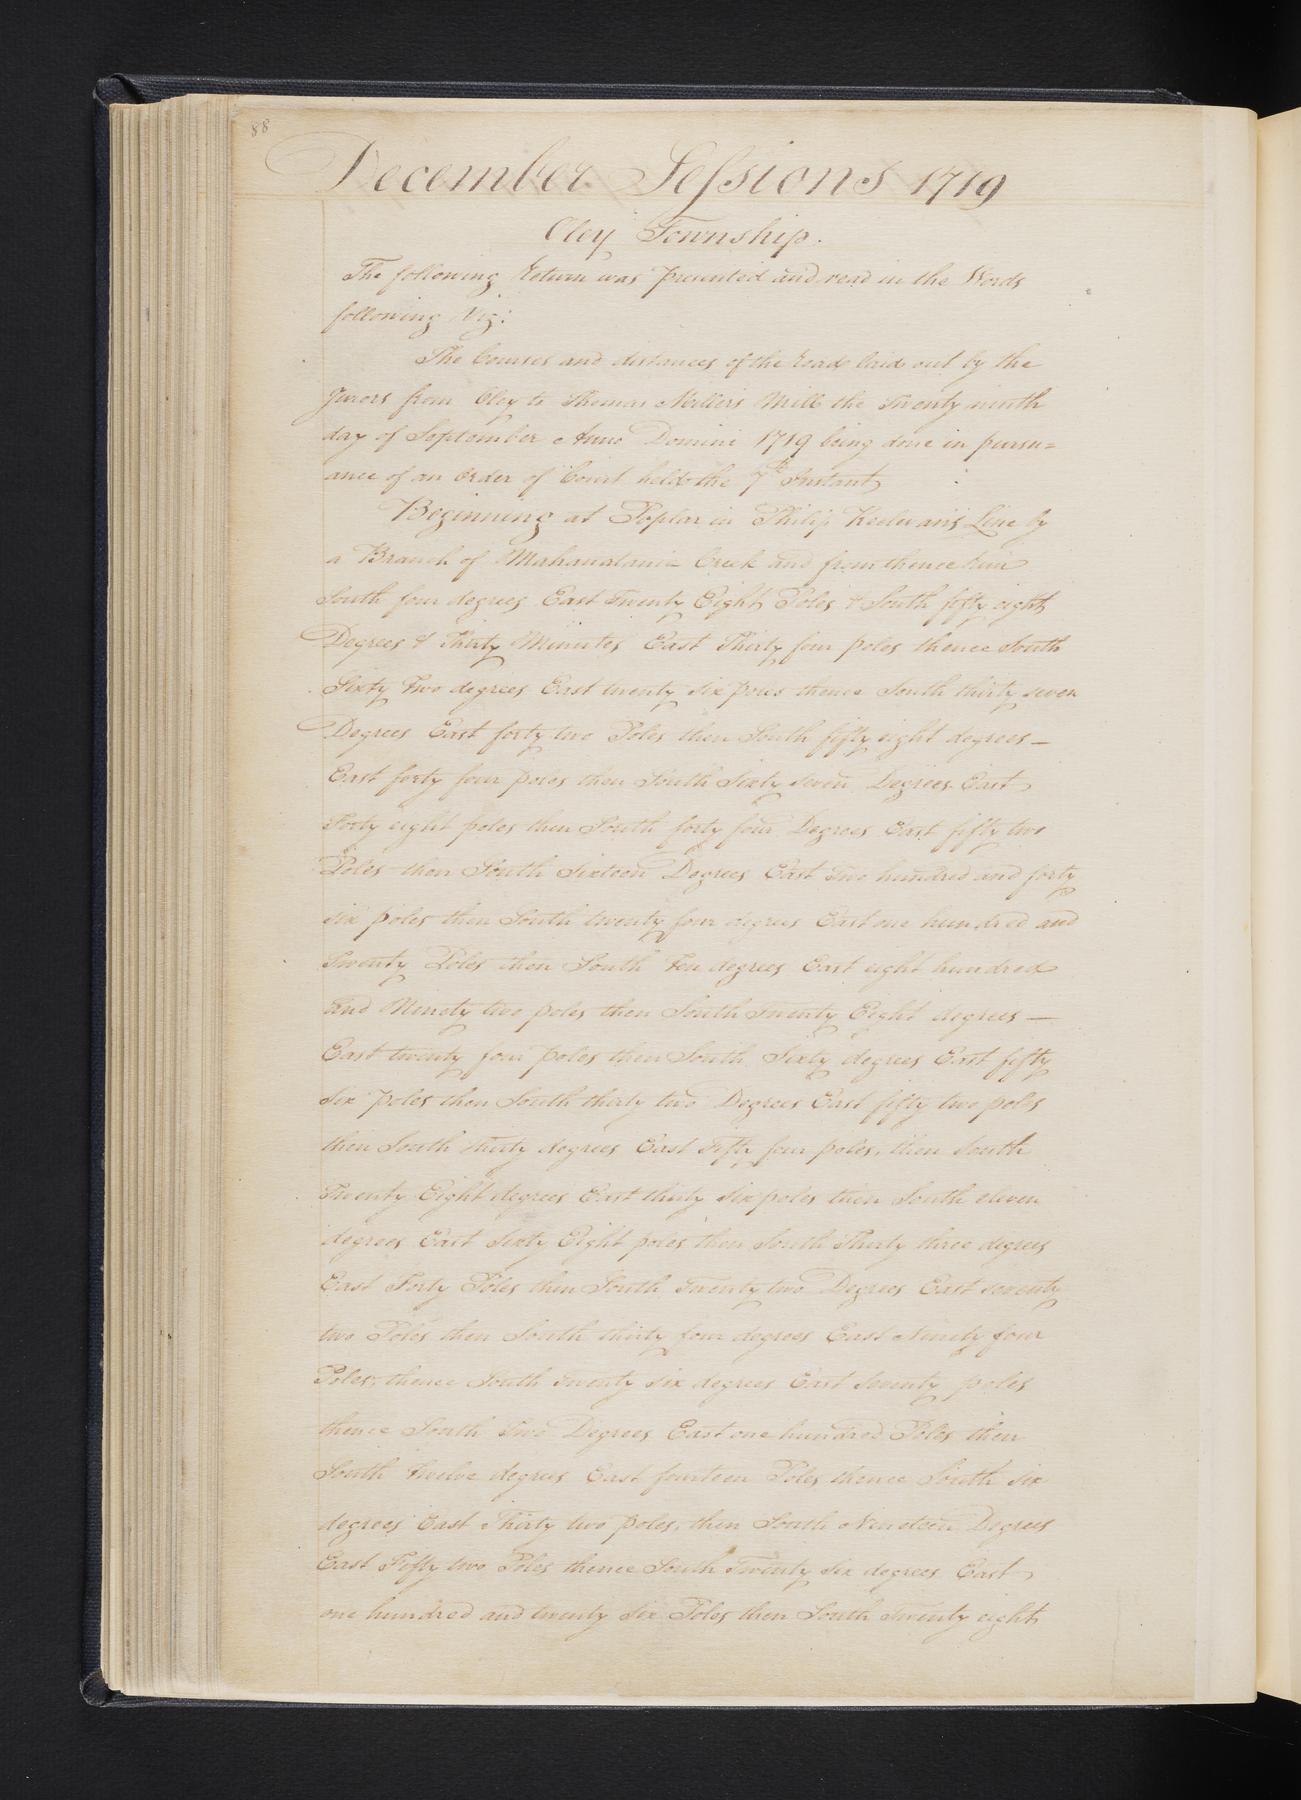 88
December Sessions 1719
Oley Township.
The following Return was presented and read in the Words
following Viz:
The Courses and distances of the Road laid out by the
Jurors from Oley to Thomas Millers Mill the Twenty ninth
day of September Anno Domini 1719 being done in pursu=
ance of an Order of Court held the 7th Instant
Beginning at Poplar in Philip Line by
a Branch of Creek and from thence
South four degrees East Twenty Eight Poles & South fifty eight
Degrees & Thirty Minutes East Thirty four poles thence South
Sixty Two degrees East twenty six poles thence South thirty seven
Degrees East forty two Poles then South fifty eight degrees —
East forty four poles then South Sixty seven Degrees East
Forty eight poles then South forty four Degrees East fifty two
Poles then South Sixteen Degrees East Two hundred and forty
six poles then South twenty four degrees East one hundred and
Twenty Poles then South Ten degrees East eight hundred
and Ninety two poles then South Twenty Eight degrees —
East twenty four poles then South Sixty degrees East fifty
Six poles then South thirty two Degrees East fifty two poles
then South thirty degrees East Fifty four poles, then South
Twenty Eight degrees East thirty Six poles then South eleven
degrees East Sixty Eight poles then South Thirty three degrees
East Forty Poles then South Twenty two Degrees East seventy
two Poles then South thirty four degrees East Ninety four
Poles, thence South twenty six degrees East seventy poles
thence South Two Degrees East one hundred Poles then
South Twelve degrees East fourteen Poles thence South six
degrees East Thirty two poles, then South Nineteen Degrees
East Fifty two Poles thence South Twenty Six degrees East
one hundred and twenty Six Poles then South Twenty eight